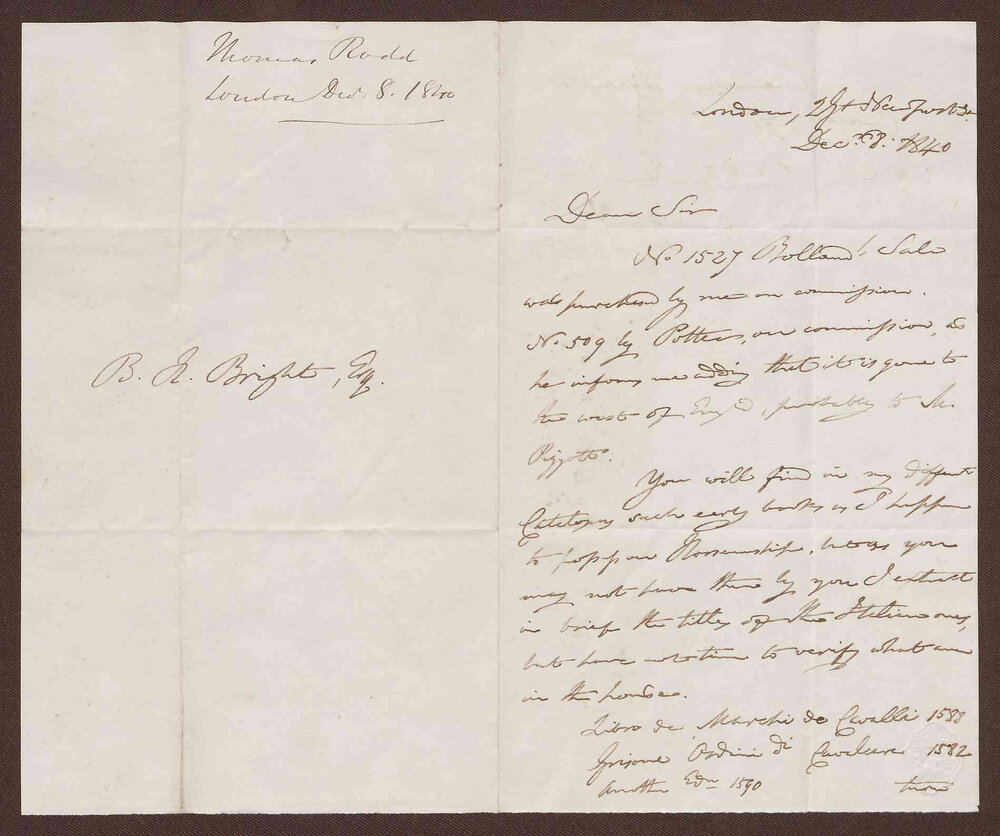 Thomas Rodd
London Dec. 8. 1840
B. H. Bright, Esq.
London, 2 Gt Newport St
Dec.r 8. 1840
Dear Sir
No 1527 Bolland's Sale
was purchased by me on commission.
No. 509 by Potter, on commission, as
he informs me adding that it is gone to
the west of Engd, probably to Mr
Pigott.
You will find in my different
Catalogues such early books as I happen
to possess on Horsemanship, but as you
may not have them by you I extract
in brief the titles of the Italian ones,
but have not time to verify what are
in the house.
Libro de Marchi de Cavalli 1588
Grisone Ordini di Cavalcare 1582
Another Edn 1590
turn